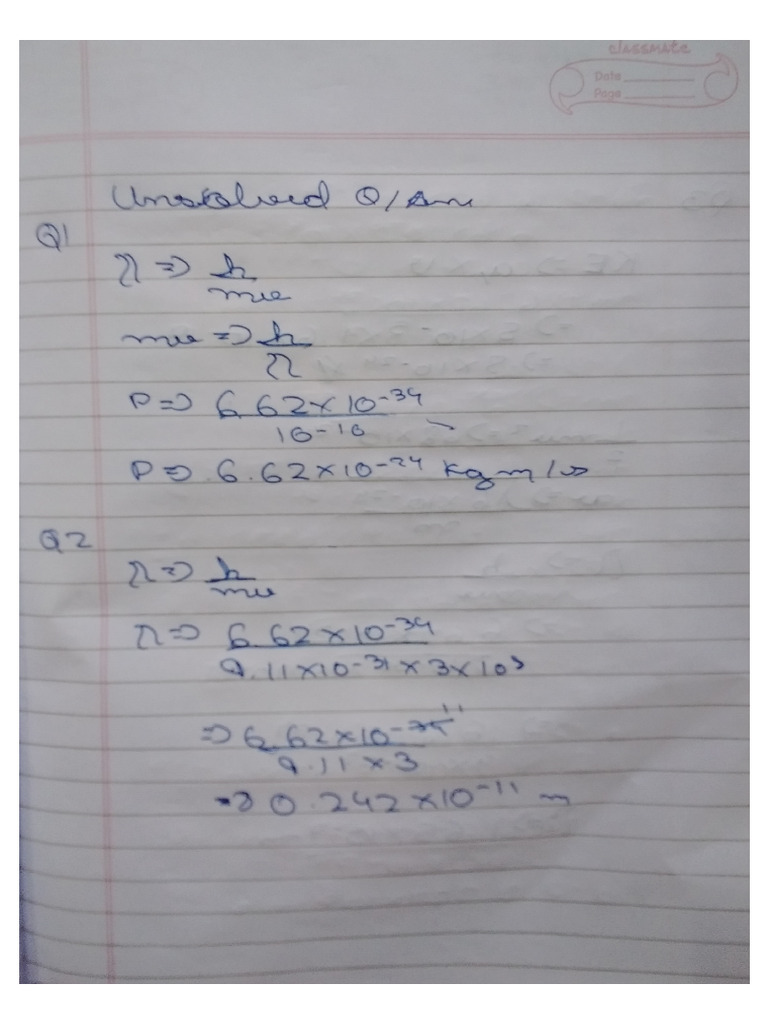 classmate
Date
Page
Unsolved Q/Ans
Q1
λ => h/mv
mv => h/λ
P => 6.62 × 10^-34 / 10^-10
P => 6.62 × 10^-24 kg m/s
Q2
λ => h/mv
λ => 6.62 × 10^-34 / 9.11 × 10^-31 × 3 × 10^8
=> 6.62 × 10^-11 / 9.11 × 3
=> 0.242 × 10^-11 m